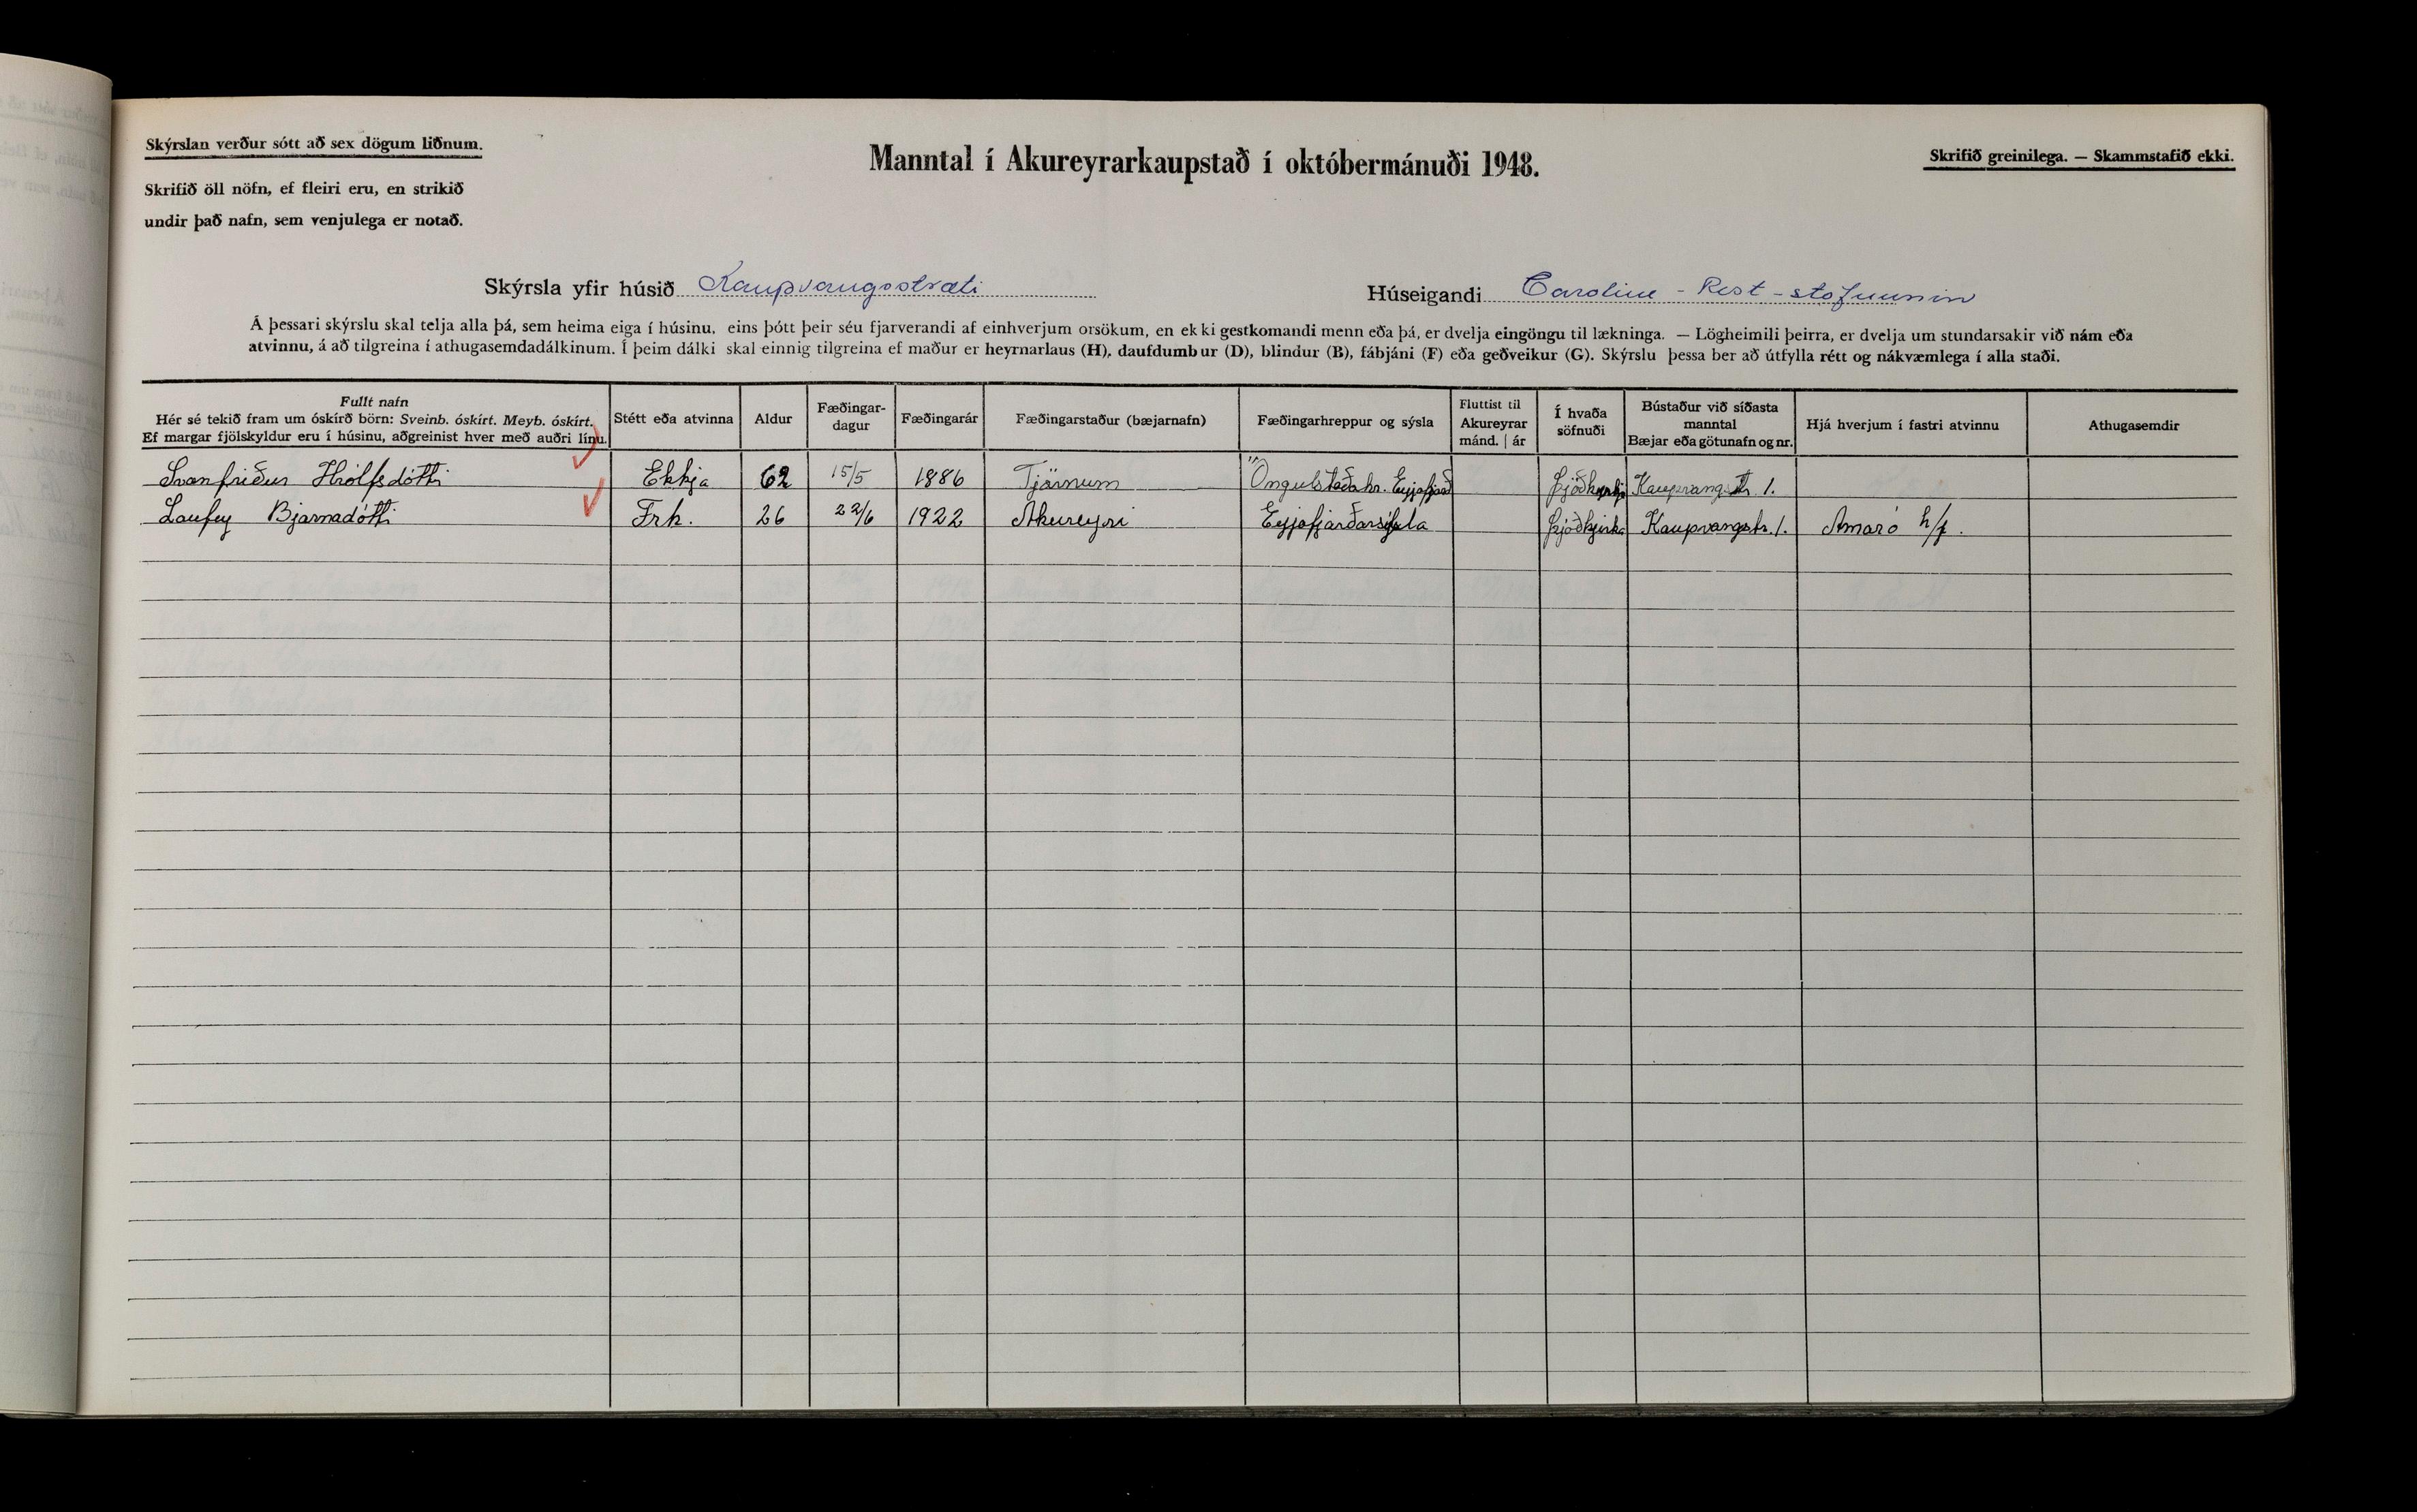 Skýrslan verður sótt að sex dögum liðnum.
Skrifið öll nöfn, ef fleiri eru, en strikið
undir það nafn, sem venjulega er notað.
Manntal í Akureyrarkaupstað í októbermánuði 1948.
Skrifið greinilega. — Skammstafið ekki.
Skýrsla yfir húsið Kaupvangsstræti
Húseigandi Caroline - Rest - stofnunin
Á þessari skýrslu skal telja alla þá, sem heima eiga í húsinu, eins þótt þeir séu fjarverandi af einhverjum orsökum, en ekki gestkomandi menn eða þá, er dvelja eingöngu til lækninga. — Lögheimili þeirra, er dvelja um stundarsakir við nám eða
atvinnu, á að tilgreina í athugasemdadálkinum. Í þeim dálki skal einnig tilgreina ef maður er heyrnarlaus (H), daufdumbur (D), blindur (B), fábjáni (F) eða geðveikur (G). Skýrslu þessa ber að útfylla rétt og nákvæmlega í alla staði.
Fullt nafn
Hér sé tekið fram um óskírð börn: Sveinb. óskírt. Meyb. óskírt.
Ef margar fjölskyldur eru í húsinu, aðgreinist hver með auðri línu.
Stétt eða atvinna
Aldur
Fæðingar-
dagur
Fæðingarár
Fæðingarstaður (bæjarnafn)
Fæðingarhreppur og sýsla
Fluttist til
Akureyrar
mánd. | ár
Í hvaða
söfnuði
Bústaður við síðasta
manntal
Bæjar eða götunafn og nr.
Hjá hverjum í fastri atvinnu
Athugasemdir
Svanfríður Hrólfsdóttir Ekkja 62 15/5 1886 Tjörnum Öngulstaðahr. Eyjafjarð Þjóðkirkj Kaupvangstr. 1.
Laufey Bjarnadóttir Frk. 26 22/6 1922 Akureyri Eyjafjarðarsýsla Þjóðkirkja Kaupvangstr. 1. Amaró h/f.